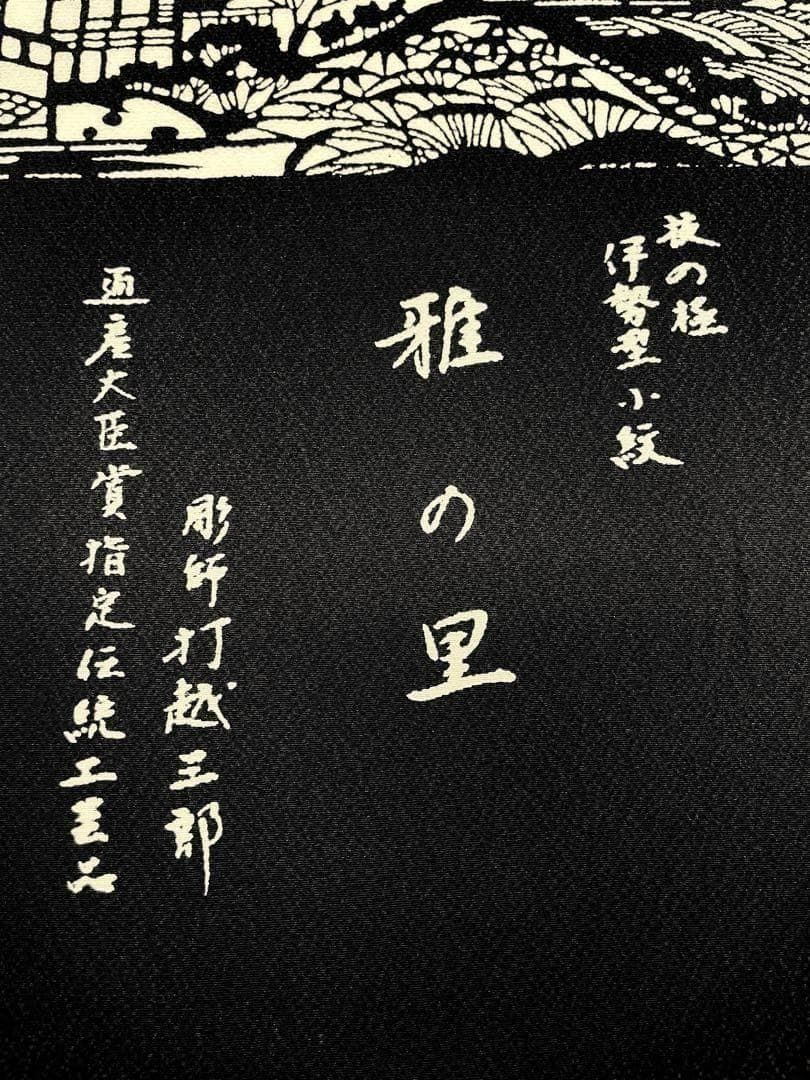 技の極
伊勢型小紋
雅の里
彫師打越三郎
通産大臣賞指定伝統工芸品